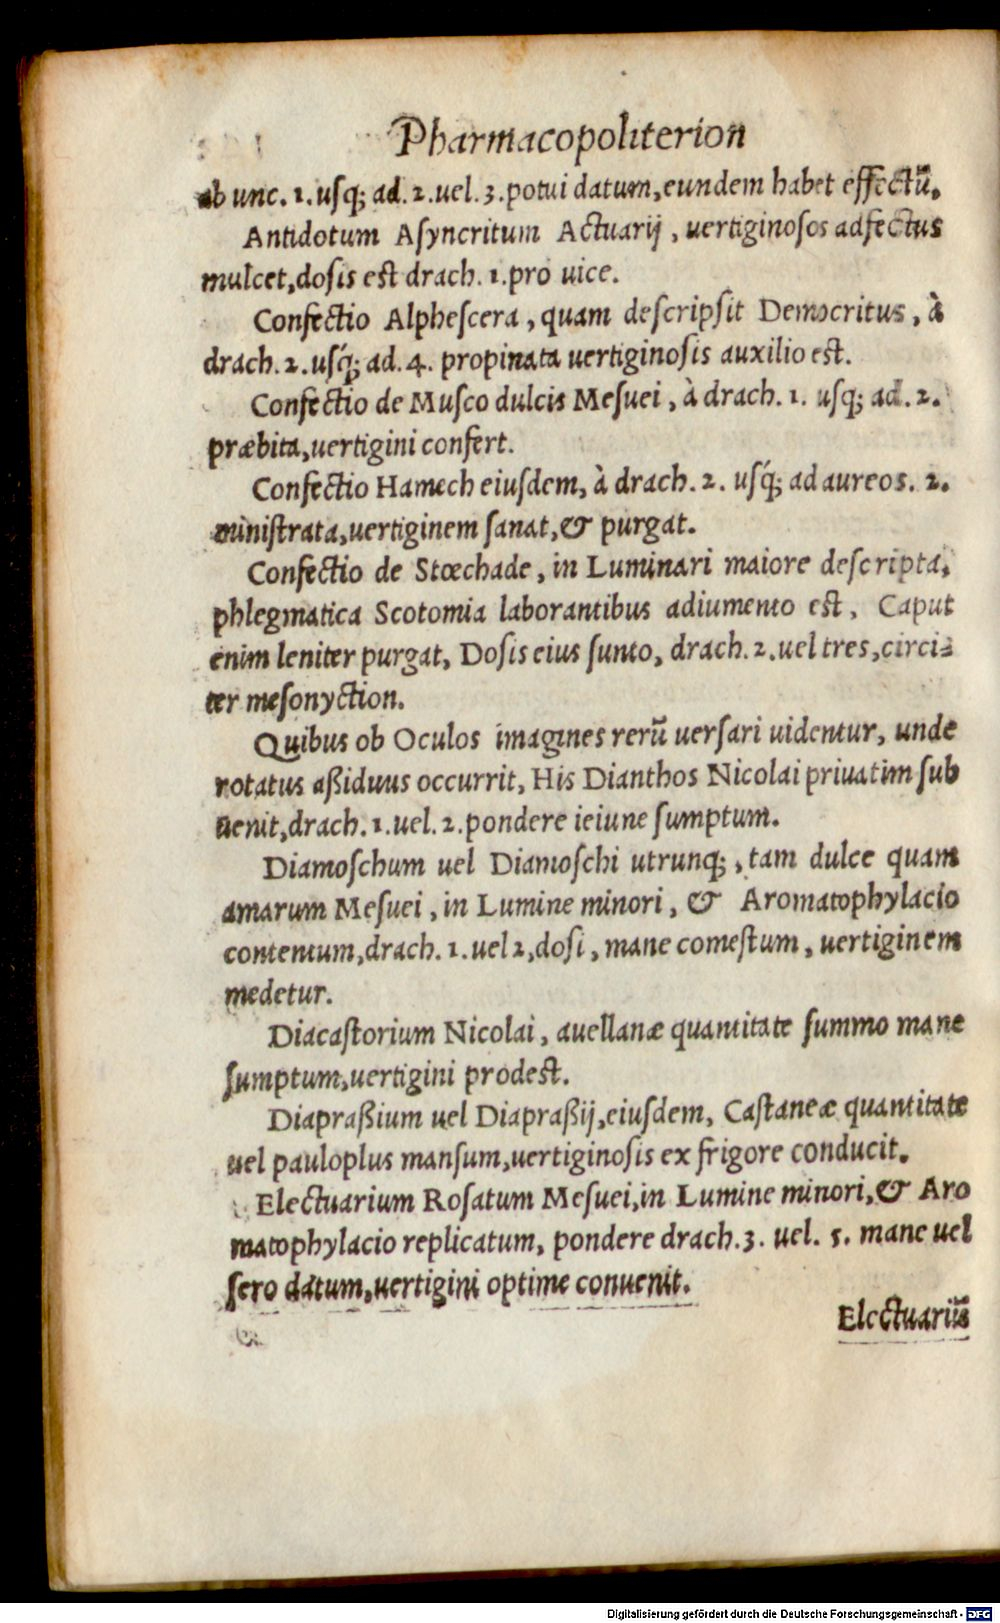 Pharmacopoliterion
ab unc. 1. uſq; ad. 2. uel. 3. potui datum, eundem habet effectū.
Antidotum Aſyncritum Actuarij, uertiginoſos adfectus
mulcet, doſis eſt drach. 1. pro uice.
Confectio Alpheſcera, quam deſcripſit Democritus, à
drach. 2. uſq́; ad. 4. propinata uertiginoſis auxilio eſt.
Confectio de Muſco dulcis Meſuei, à drach. 1. uſq; ad. 2.
præbita, uertigini confert.
Confectio Hamech eiuſdem, à drach. 2. uſq́; ad aureos. 2.
miniſtrata, uertiginem ſanat, & purgat.
Confectio de Stœchade, in Luminari maiore deſcripta,
phlegmatica Scotomia laborantibus adiumento eſt, Caput
enim leniter purgat, Doſis eius ſunto, drach. 2. uel tres, circi=
ter meſonyction.
Quibus ob Oculos imagines rerū uerſari uidentur, unde
rotatus aßiduus occurrit, His Dianthos Nicolai priuatim ſub
uenit, drach. 1. uel. 2. pondere ieiune ſumptum.
Diamoſchum uel Diamoſchi utrunq;, tam dulce quam
amarum Meſuei, in Lumine minori, & Aromatophylacio
contentum, drach. 1. uel 2, doſi, mane comeſtum, uertiginem
medetur.
Diacaſtorium Nicolai, auellanæ quantitate ſummo mane
ſumptum, uertigini prodeſt.
Diapraßium uel Diapraßij, eiuſdem, Caſtaneæ quantitate
uel pauloplus manſum, uertiginoſis ex frigore conducit.
Electuarium Roſatum Meſuei, in Lumine minori, & Aro
matophylacio replicatum, pondere drach. 3. uel. 5. mane uel
ſero datum, uertigini optime conuenit.
Electuariū
Digitalisierung gefördert durch die Deutsche Forschungsgemeinschaft - DFG